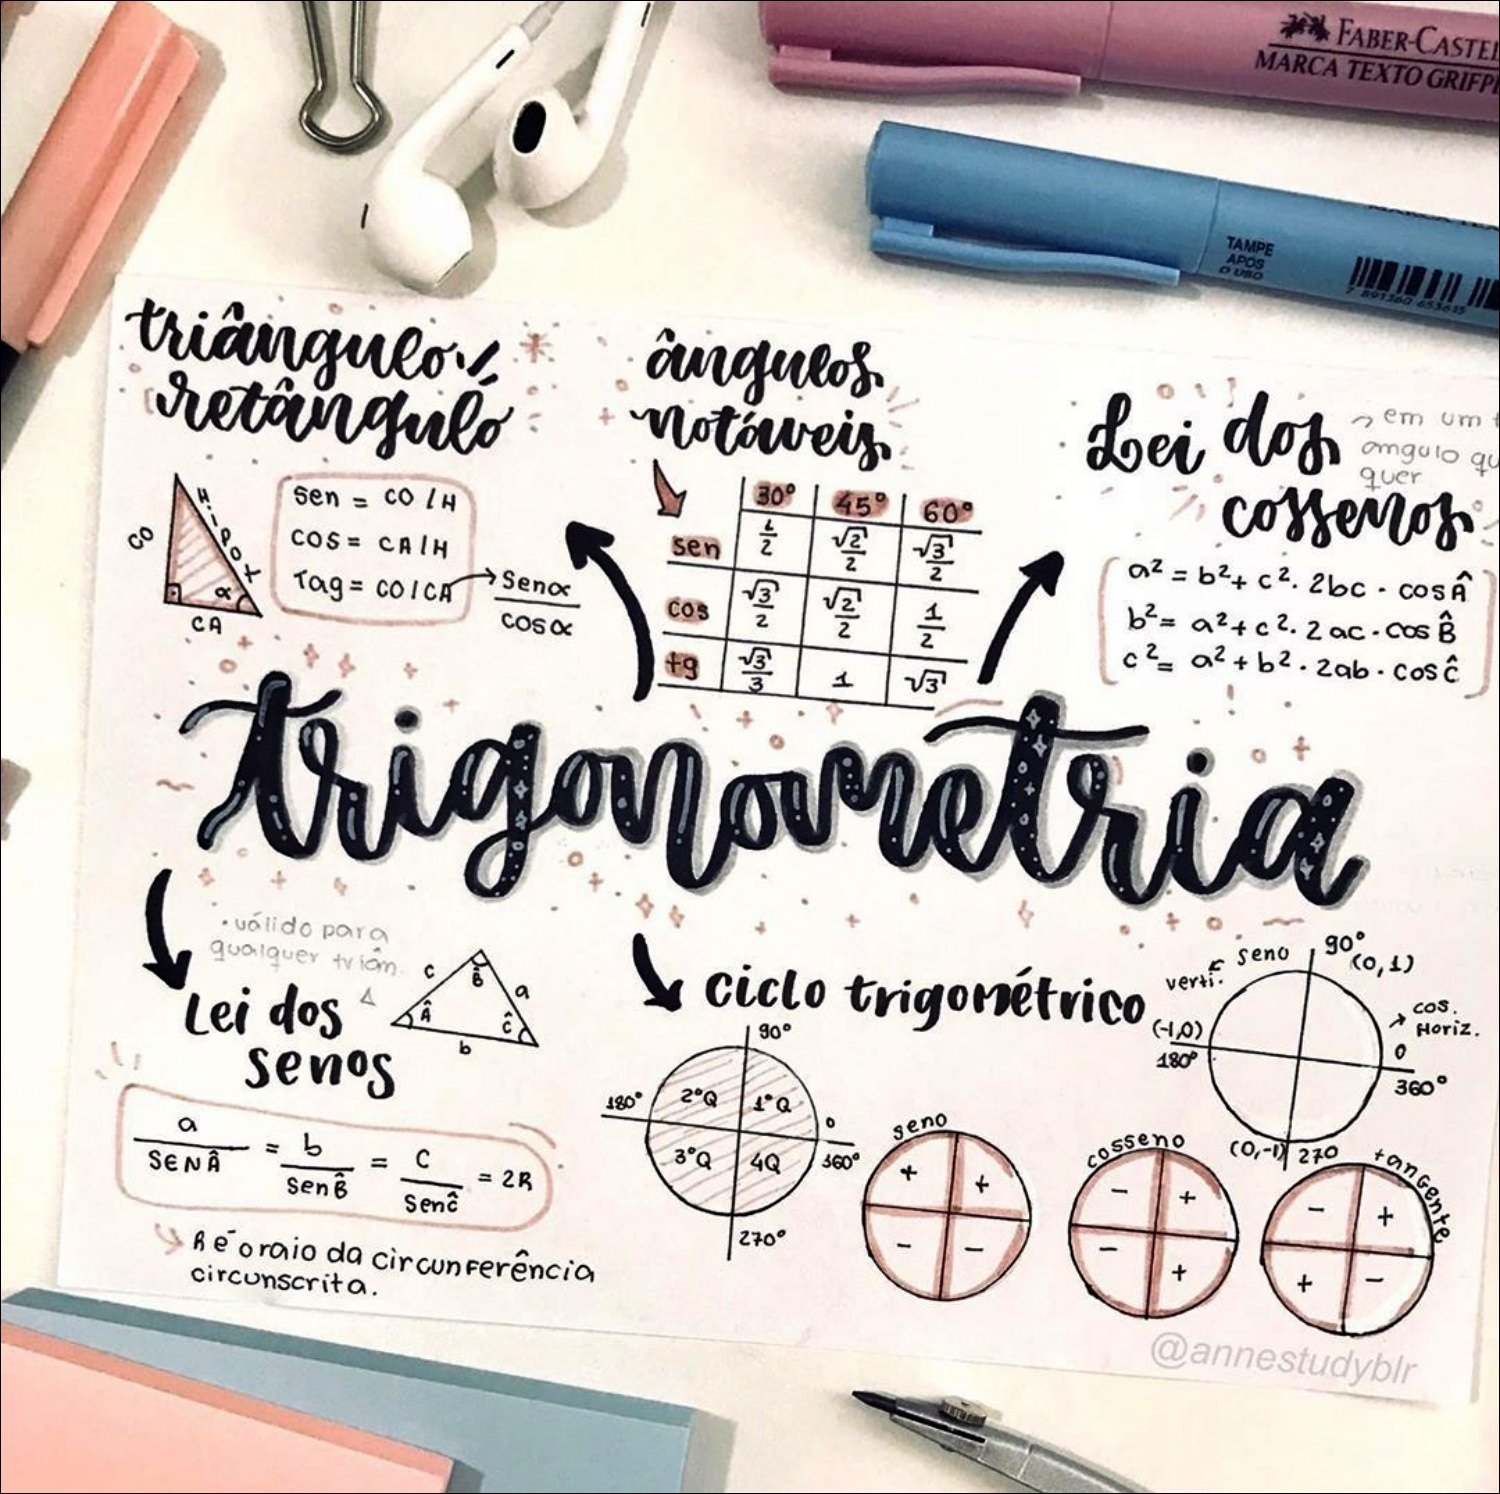 FABER-CASTEL
MARCA TEXTO GRIFP
TAMPE
APÓS
O USO
7 891360 653615
triângulo
retângulo
CO
HIPOT
α
CA
sen = CO/H
cos = CA/H
Tag = CO/CA
senα
cosα
ângulos
notáveis
30° 45° 60°
sen 1/2 √2/2 √3/2
cos √3/2 √2/2 1/2
tg √3/3 1 √3
Lei dos
cossenos
em um
angulo qu
quer
a² = b² + c² · 2bc · cos Â
b² = a² + c² · 2ac · cos B̂
c² = a² + b² · 2ab · cos ĉ
trigonometria
· válido para
qualquer triân.
Lei dos
senos
c B̂ a
Â ĉ
b
a/SENÂ = b/senB̂ = c/senĉ = 2R
R é o raio da circunferência
circunscrita.
ciclo trigométrico
90°
180° 2°Q 1°Q 0
3°Q 4Q 360°
270°
seno
verti.
90°
(0,1)
cos.
Horiz.
(-1,0)
180°
0
360°
(0,-1) 270
seno
+ +
- -
cosseno
- +
- +
tangente
- +
+ -
@annestudyblr